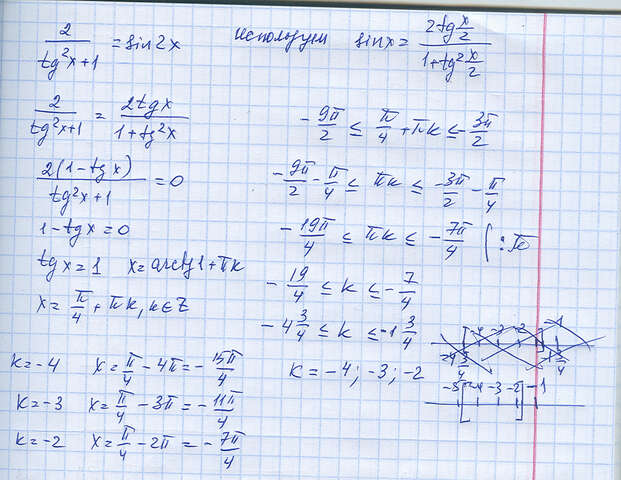 2/(tg²x+1) = sin2x используем sinx = 2tg x/2 / (1+tg² x/2)
2/(tg²x+1) = 2tgx/(1+tg²x)
2(1-tgx)/(tg²x+1) = 0
1-tgx=0
tgx=1 x=arctg1+πk
x=π/4+πk, k∈Z
-9π/2 ≤ π/4+πk ≤ -3π/2
-9π/2 - π/4 ≤ πk ≤ -3π/2 - π/4
-19π/4 ≤ πk ≤ -7π/4 | :π
-19/4 ≤ k ≤ -7/4
-4 3/4 ≤ k ≤ -1 3/4
k=-4; -3; -2
k=-4 x=π/4-4π=-15π/4
k=-3 x=π/4-3π=-11π/4
k=-2 x=π/4-2π=-7π/4
-5 -4 -3 -2 -1